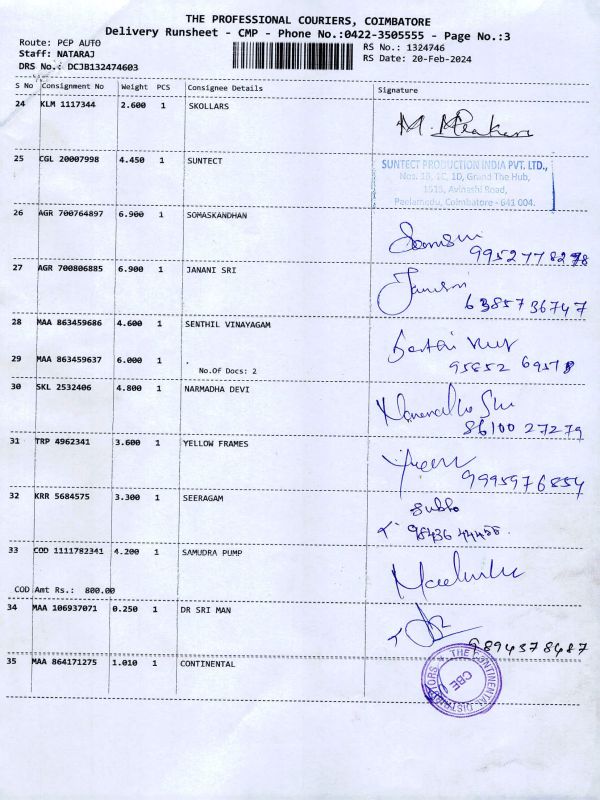 THE PROFESSIONAL COURIERS, COIMBATORE
Delivery Runsheet - CMP - Phone No.:0422-3505555 - Page No.:3
Route: PCP AUTO
Staff: NATARAJ
DRS No.: DCJB132474603
RS No.: 1324746
RS Date: 20-Feb-2024
S No Consignment No Weight PCS Consignee Details Signature
24 KLM 1117344 2.600 1 SKOLLARS
25 CGL 20007998 4.450 1 SUNTECT
SUNTECT PRODUCTION INDIA PVT. LTD.,
Nos. 1B, 1C, 1D, Grand The Hub,
1513, Avinashi Road,
Peelamedu, Coimbatore - 641 004.
26 AGR 700764897 6.900 1 SOMASKANDHAN
27 AGR 700806885 6.900 1 JANANI SRI
6385736747
28 MAA 863459686 4.600 1 SENTHIL VINAYAGAM
29 MAA 863459637 6.000 1 .
No.Of Docs: 2
95852 69578
30 SKL 2532406 4.800 1 NARMADHA DEVI
86100 27279
31 TRP 4962341 3.600 1 YELLOW FRAMES
9995976854
32 KRR 5684575 3.300 1 SEERAGAM
98436 44455
33 COD 1111782341 4.200 1 SAMUDRA PUMP
COD Amt Rs.: 800.00
34 MAA 106937071 0.250 1 DR SRI MAN
9894378487
35 MAA 864171275 1.010 1 CONTINENTAL
THE CONTINENTAL
CBE